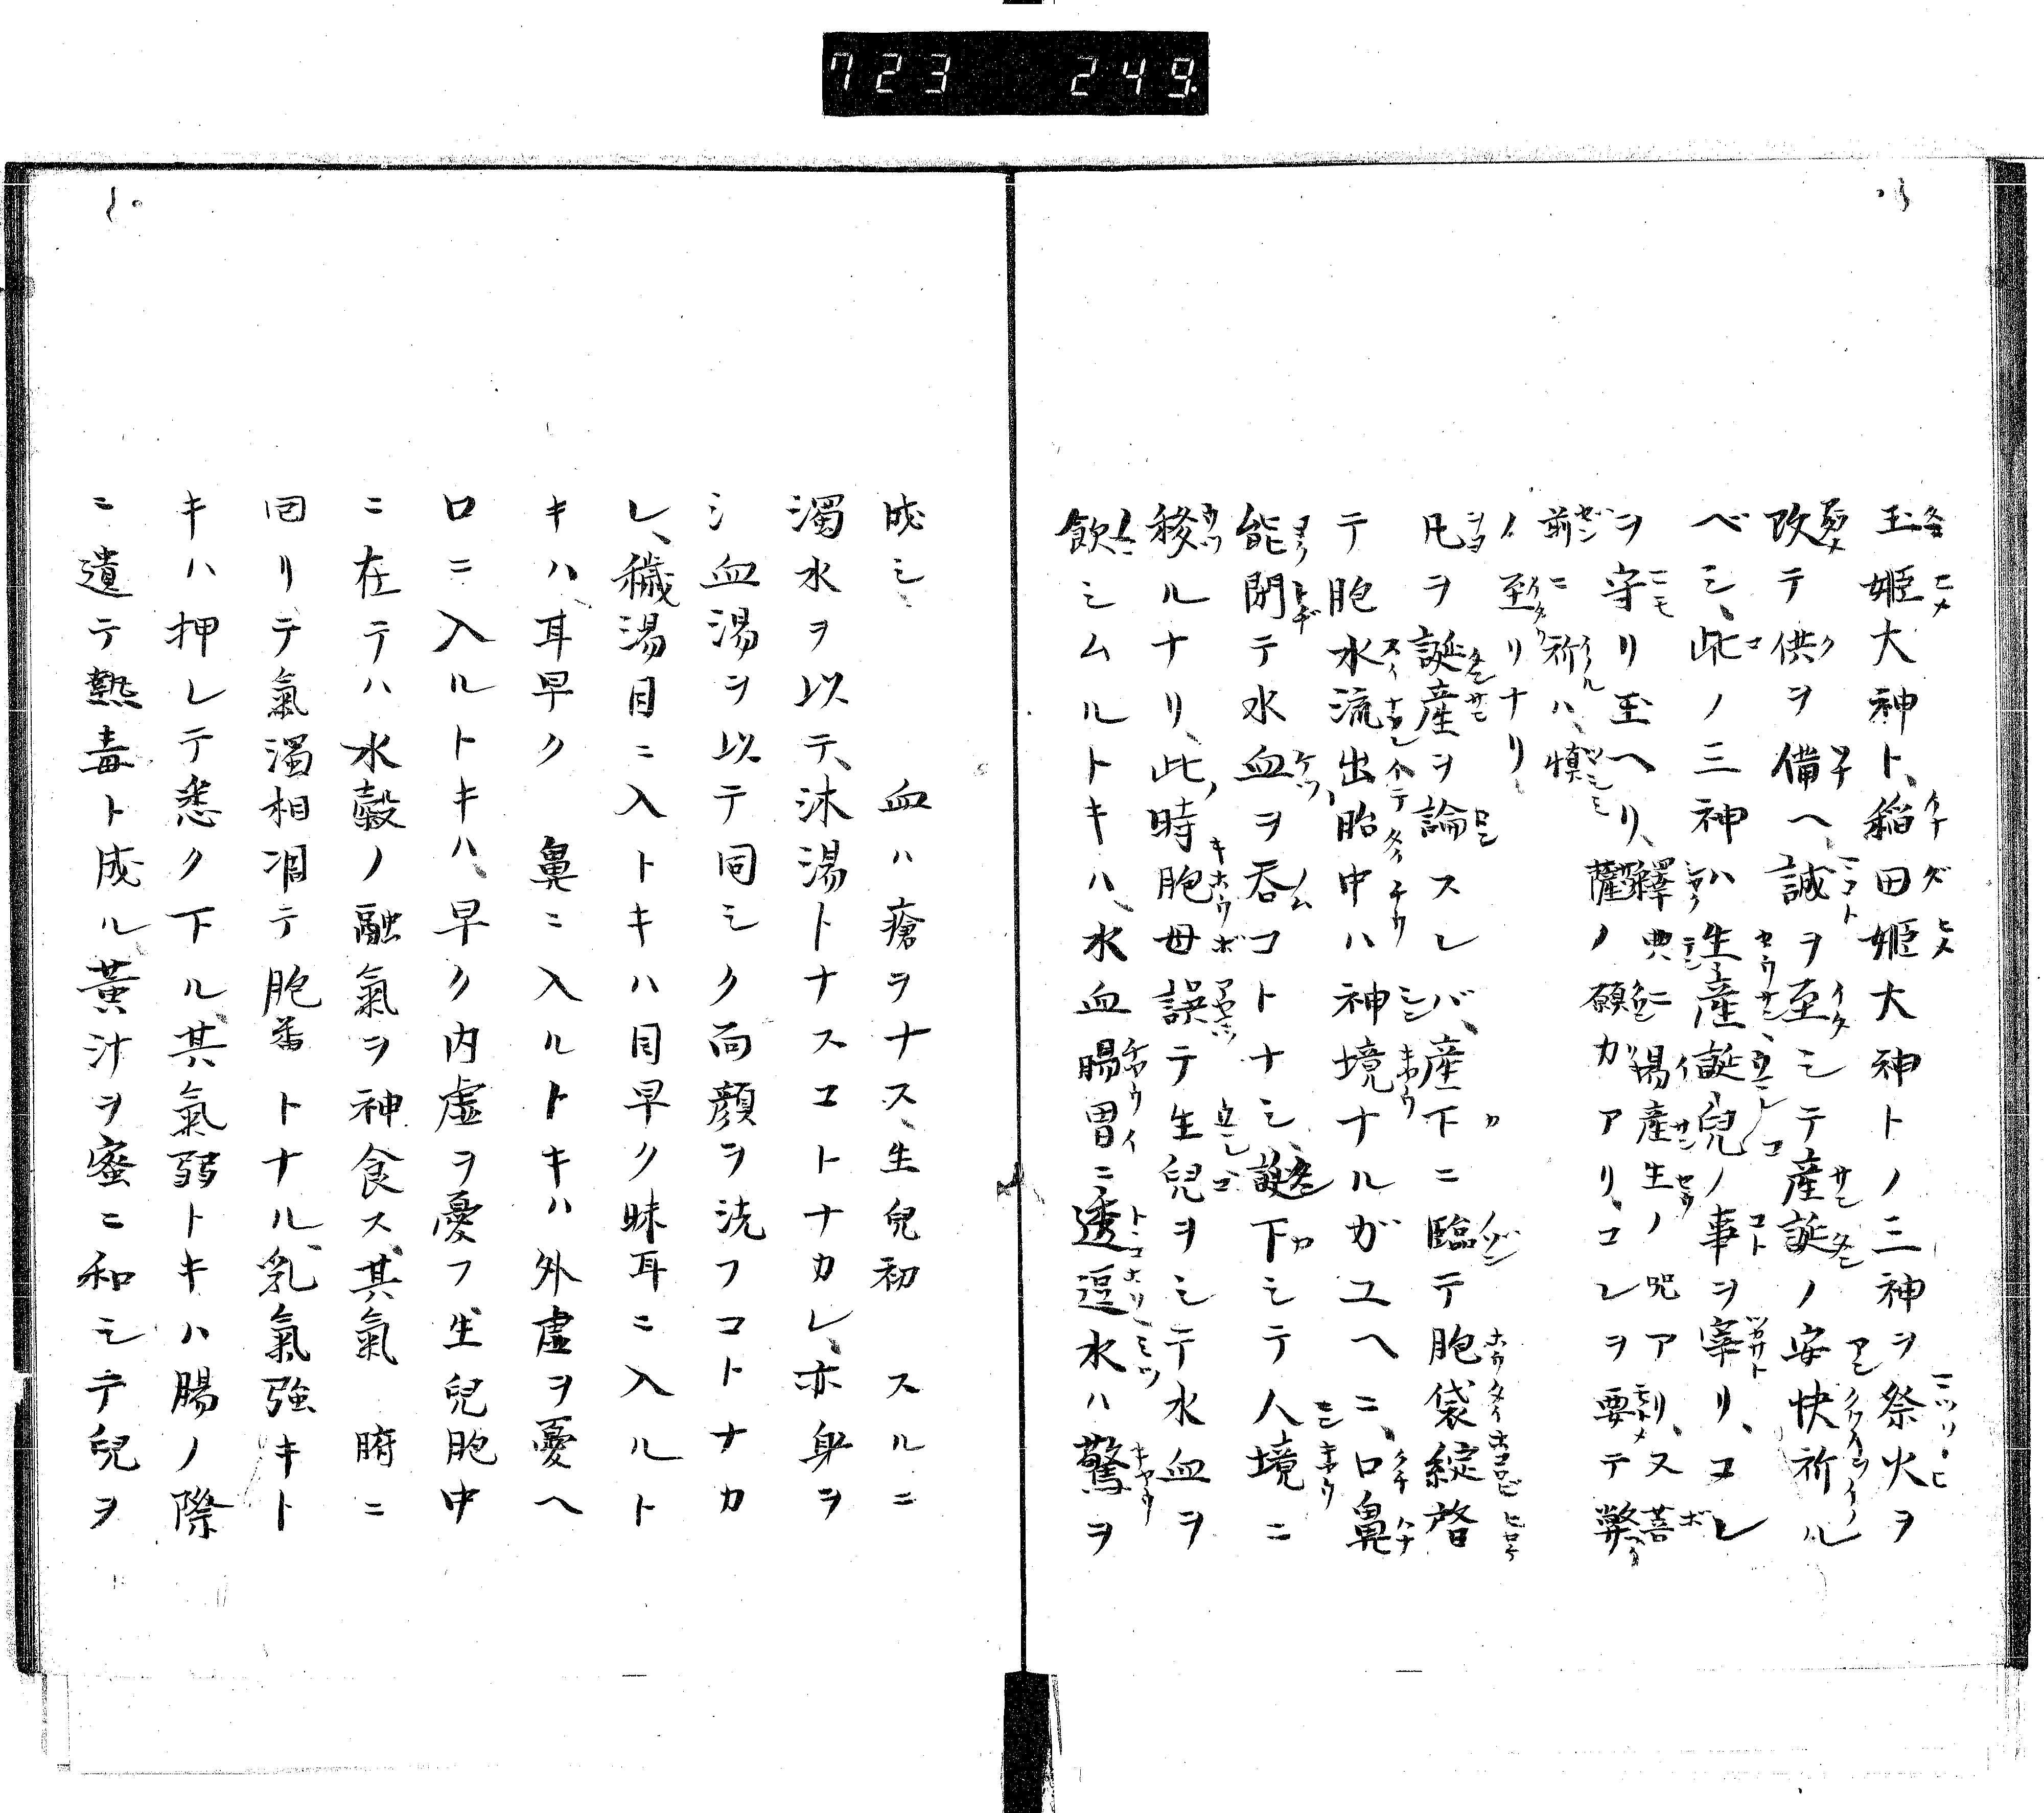 723 249.
玉姫大神ト、稲田姫大神トノ三神ヲ祭火ヲ
改テ供ヲ備へ、誠ヲ至シテ産誕ノ安快祈ル
ベシ、此ノ三神ハ生産誕兒ノ事ヲ宰リ、コレ
ヲ守リ玉ヘリ、釋典ニ易産生ノ咒アリ、又菩
薩ノ願ガアリ、コレヲ要テ弊
前ニ祈ルハ、慎
ノ至リナリ
凡ヲ誕産ヲ論スレバ、産下ニ臨テ胞袋綻啓
テ胞水流出胎中ハ神境ナルガユヘニ、口鼻
能閉テ水血ヲ呑コトナシ、誕下シテ人境ニ
移ルナリ、此時胞母誤テ生兒ヲシテ水血ヲ
飲シムルトキハ、水血腸胃ニ透逗水ハ驚ヲ
成シ、血ハ瘡ヲナス、生兒初スルニ
濁水ヲ以テ、沐湯トナスコトナカレ、亦身ヲ
シ血湯ヲ以テ同シク面顔ヲ洗フコトナカ
レ、穢湯目ニ入トキハ目早ク昧耳ニ入ルト
キハ、耳早ク鼻ニ入ルトキハ外虚ヲ憂へ
口ニ入ルトキハ、早ク内虚ヲ憂フ生兒胞中
ニ在テハ水穀ノ融氣ヲ神食ス、其氣腑ニ
回リテ氣濁相凅テ胞トナル、乳氣強キト
キハ押レテ悉ク下ル、其氣弱トキハ腸ノ際
ニ遺テ熱毒ト成ル黄汁ヲ蜜ニ和シテ兒ヲ